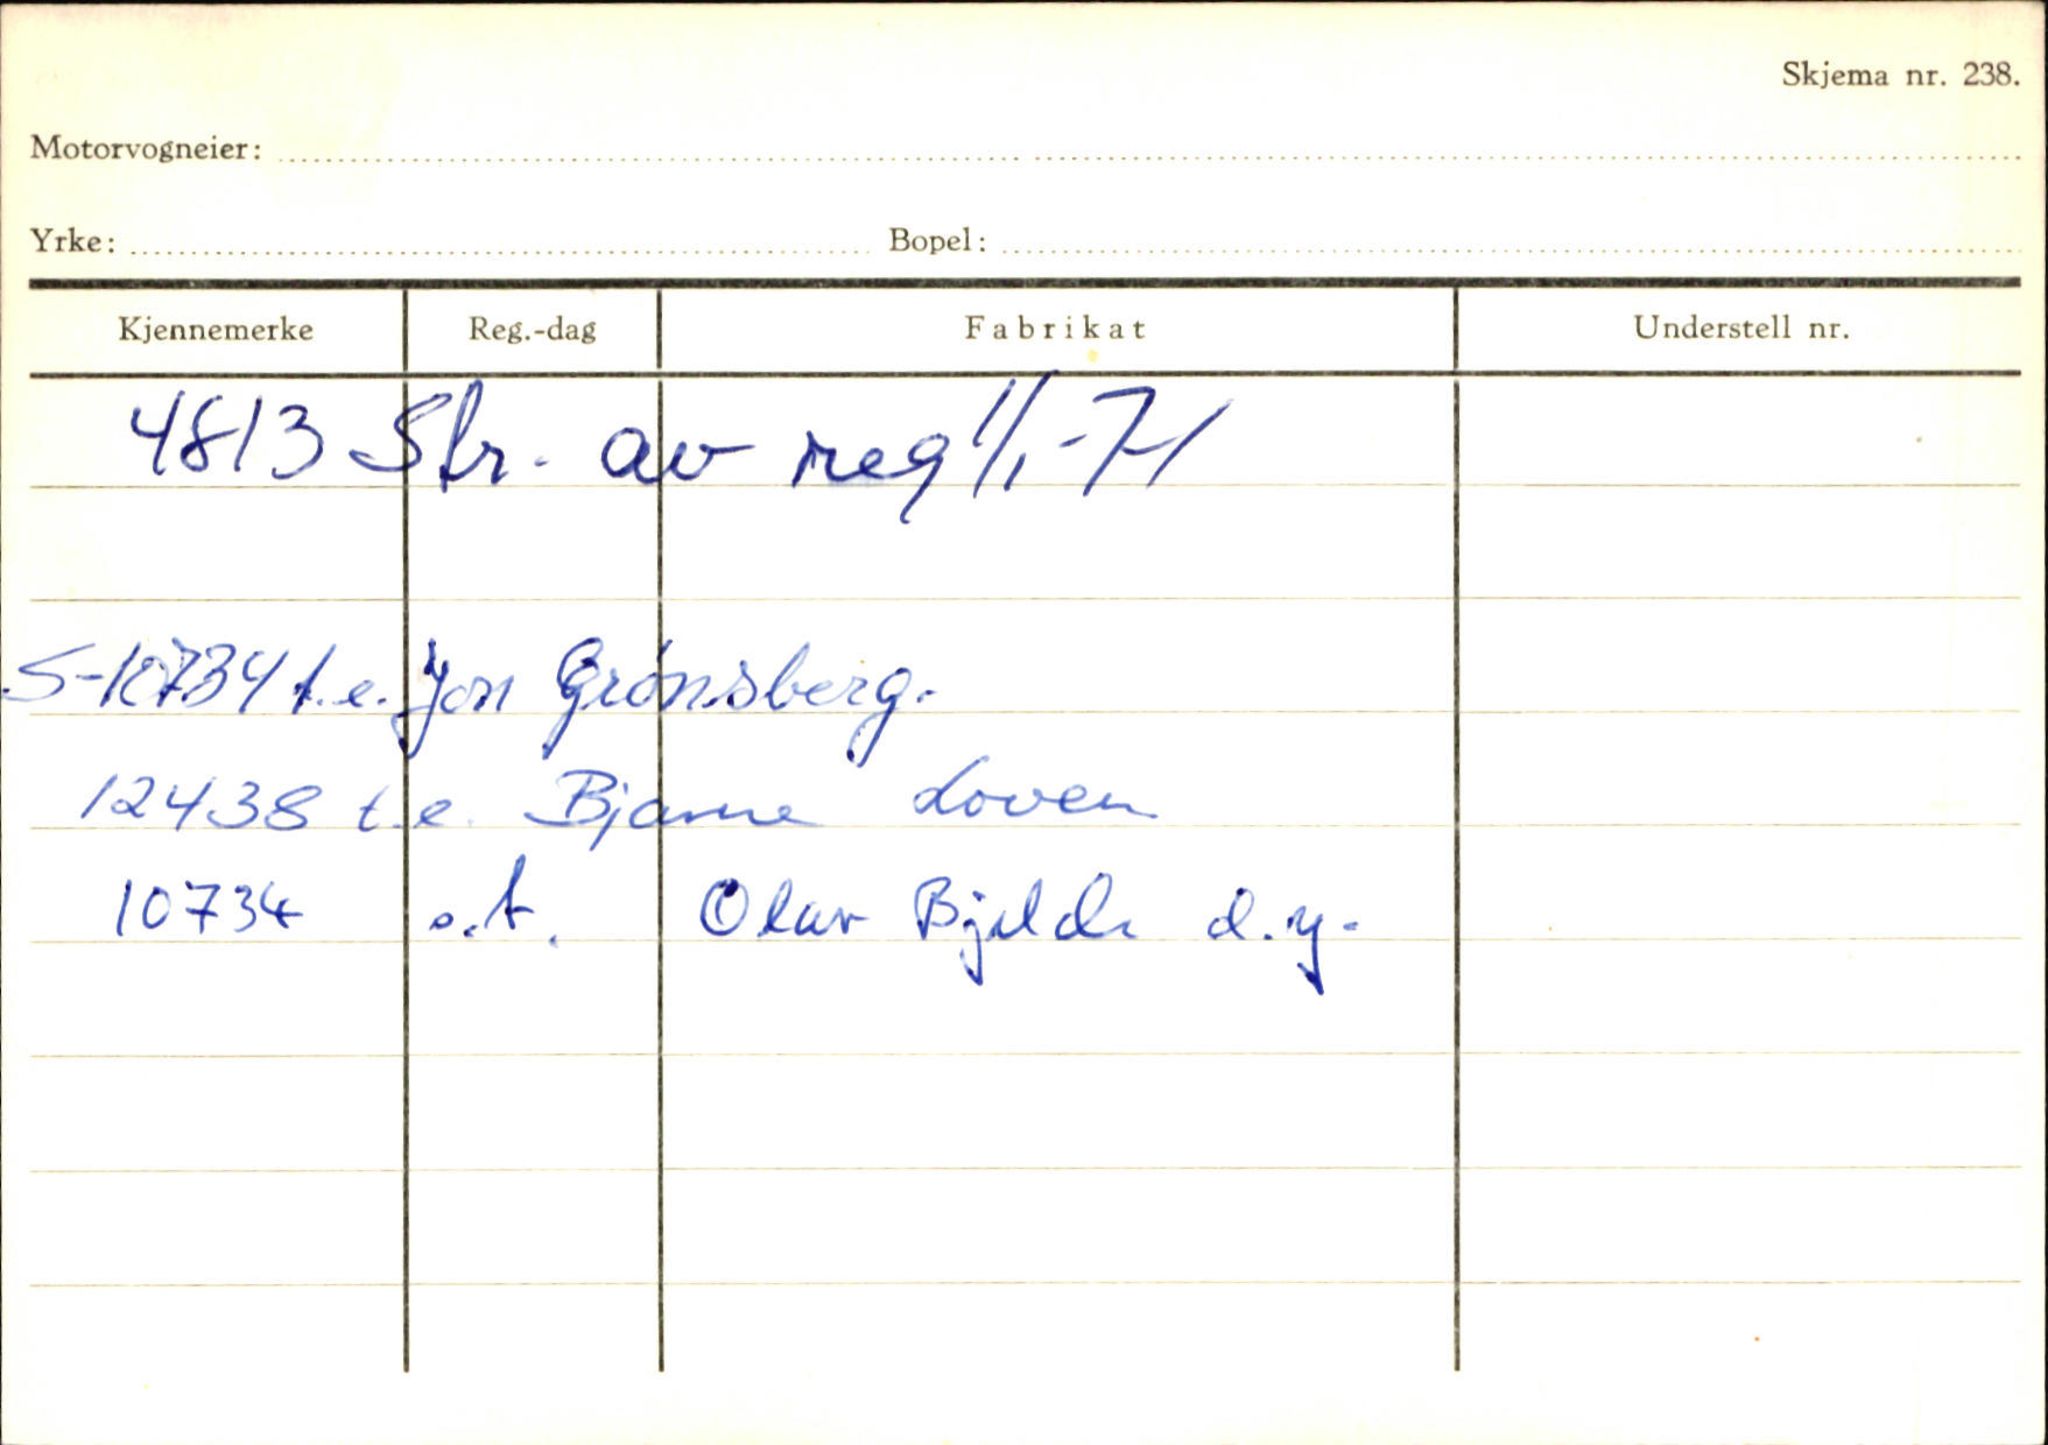 Skjema nr. 238.
Motorvogneier:
Yrke: Bopel:
Kjennemerke Reg.-dag Fabrikat Understell nr.
4813 Str. av reg 1/1-71
S-10734 t.e. Jon Grønsberg.
12438 t.e. Bjarne Loven
10734 o.t. Olav Bjelde d.y.